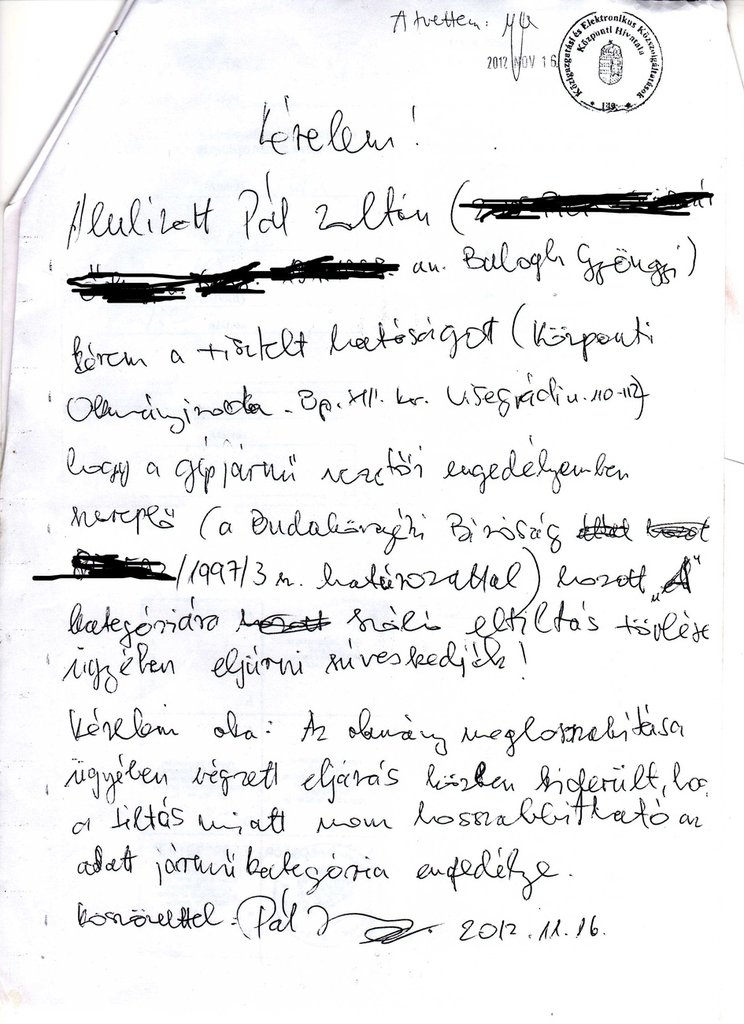 Átvettem:
2012 NOV 16.
Közigazgatási és Elektronikus Közszolgáltatások
Központi Hivatala
* 139. *
Kérelem!
Alulírott Pál Zoltán (
an. Balogh Gyöngyi)
kérem a tisztelt hatóságot (Központi
Okmányiroda. Bp. XIII. ker. Visegrádi u. 110-112)
hogy a gépjármű vezetői engedélyemben
szereplő (a Budakörnyéki Bíróság által hozott
/1997/3 sz. határozattal) hozott „A"
kategóriára hozott szóló eltiltás törlése
ügyében eljárni szíveskedjék!
Kérelem oka: Az okmány meghosszabítása
ügyében végzett eljárás közben kiderült, hogy
a tiltás miatt nem hosszabbítható az
adott járműkategória engedélye.
Köszönettel: Pál Z 2012.11.16.